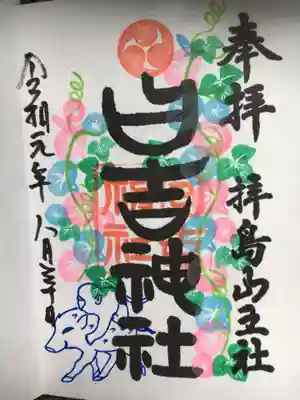 奉拝
拝島山王社
日吉神社
令和元年 八月三十日